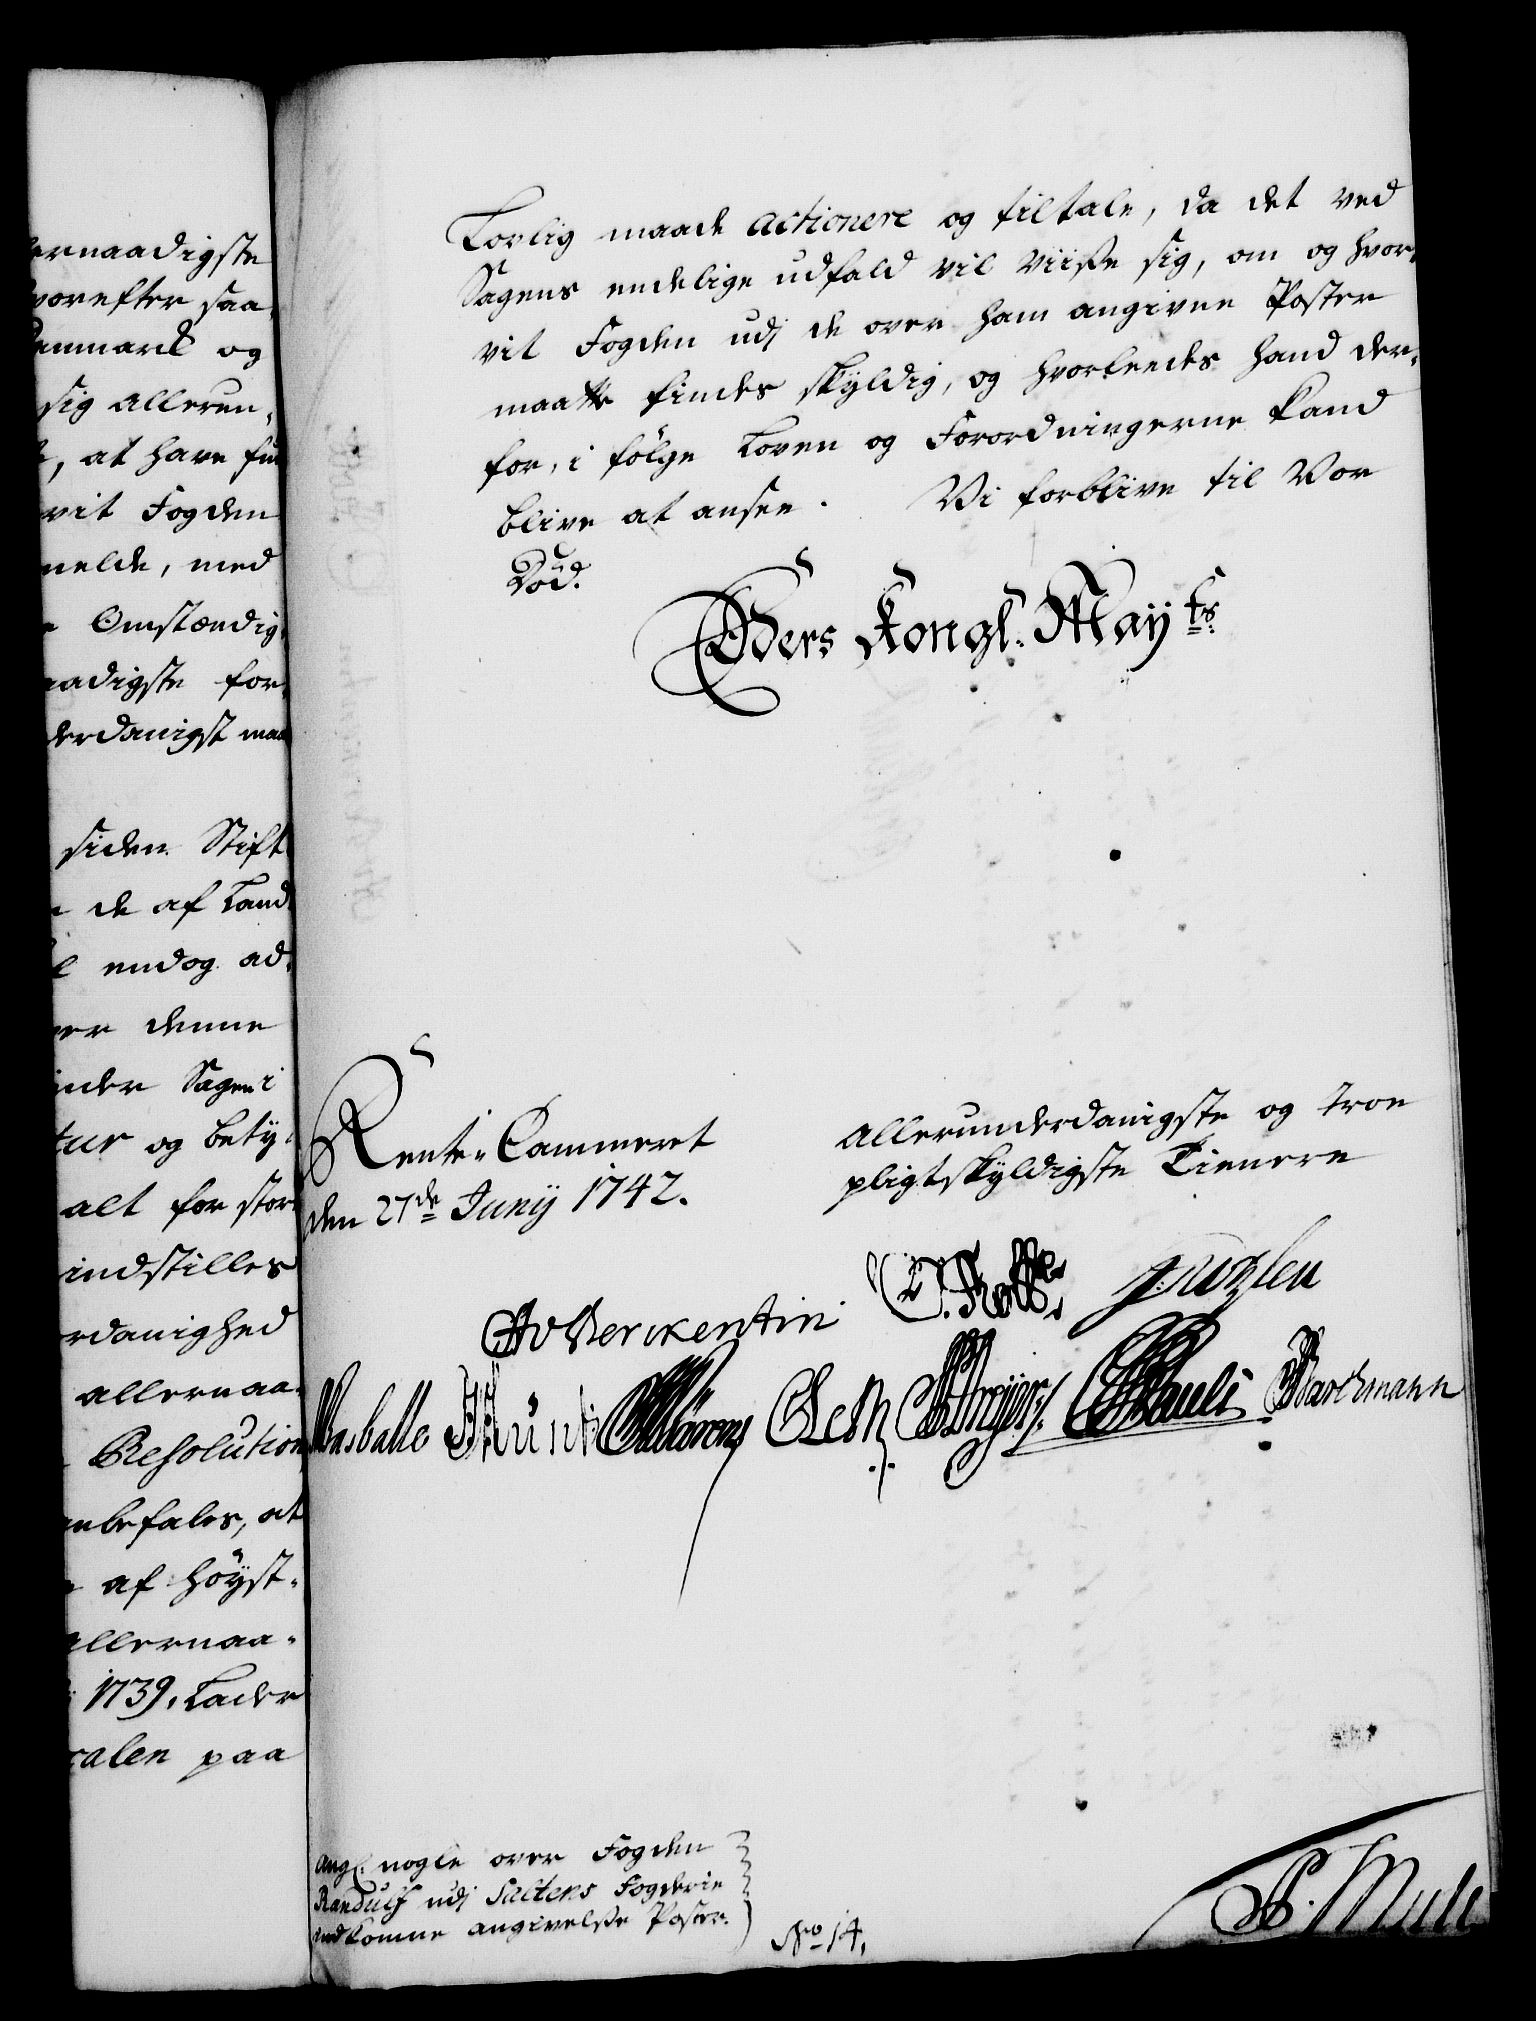 ernaadigste
vorefter saa
enmarck og
sig allerun-
, at have fun
vit Fogden
melde, med
Omstændig-
aadigste for-
derdanigst maa
siden Stift
de af Land
endog ad-
ver denne
inder Sagen i
tur og bety-
alt for stor
indstilles
rdanighed
allernaa-
Resolution
nbefales, at
af Höyst-
allernaa-
1739, Lader
calen paa
Lovlig maade actionere og tiltale, da det ved
Sagens endelige udfald vil viise sig, om og hvor-
vit Fogden udj de over ham angivne Poster
maatte findes skyldig, og hvorledes hand der-
for, i fölge Loven og Forordningerne kand
blive at ansee. Vi forblive til Vor
Död.
Eders Kongl. Mayts
Rente-Cammeret
den 27de Junij 1742.
allerunderdanigste og troe
pligtskyldigste Tienere
Berckentin
Wasballe
Pauli Bartmann
Angl. nogle over Fogden
Randulf udj Saltens Fogderie
indkomne angivelse Poster.
No 14.